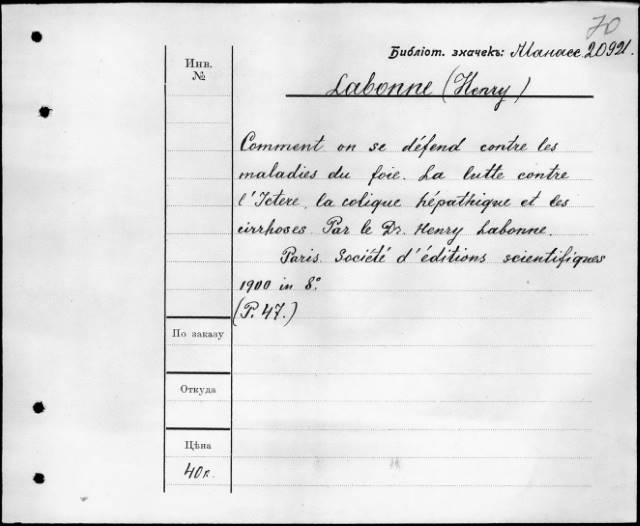 70
Библіот. значекъ: Манасс. 20921.
Инв.
№
Labonne (Henry)
Comment on se défend contre les
maladies du foie. La lutte contre
l'Ictere, la colique hépathique et les
cirrhoses. Par le Dr. Henry Labonne.
Paris. Société d'éditions scientifiques
1900 in 8°.
(P. 47.)
По заказу
Откуда
Цѣна
40 к.